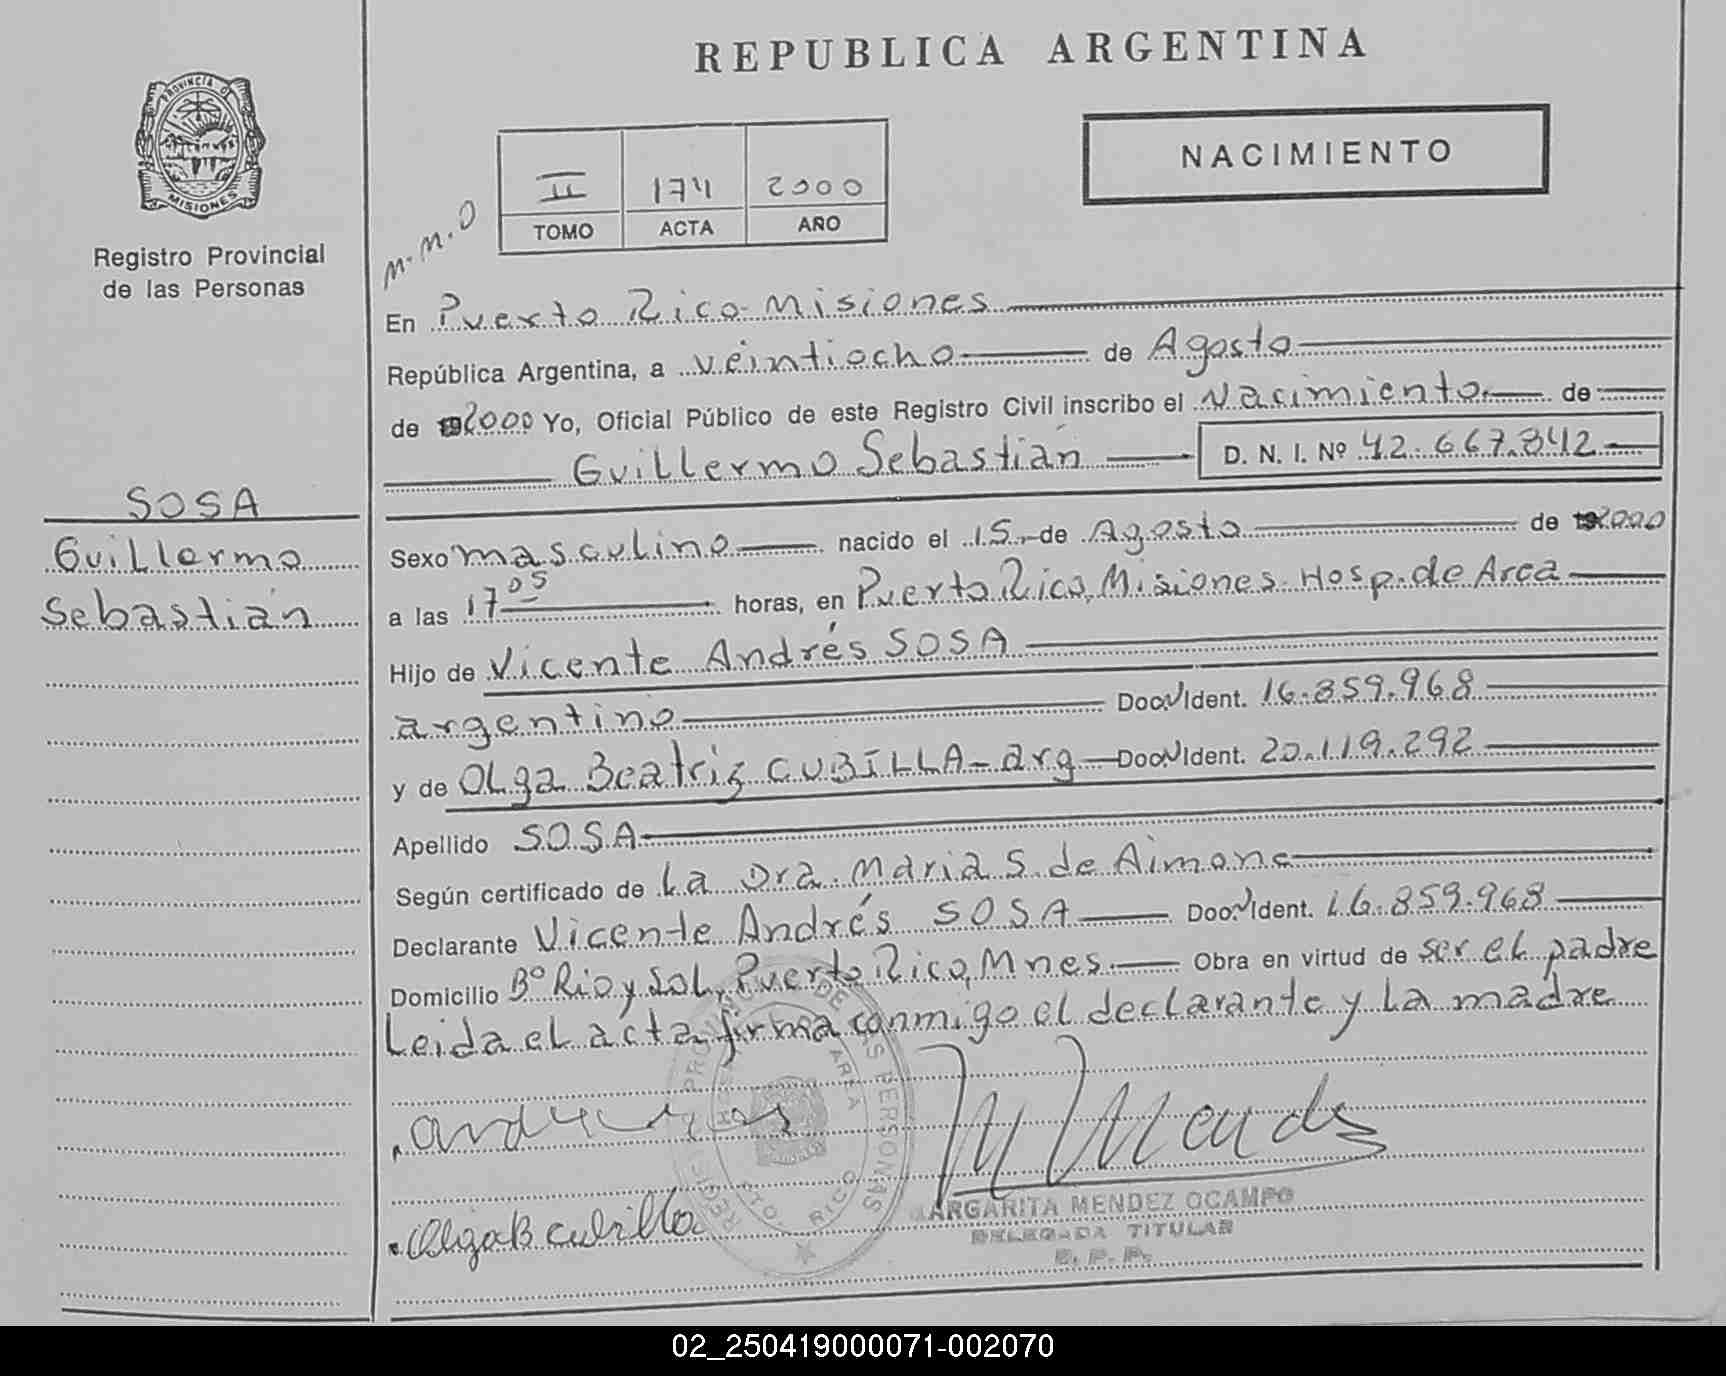 REPUBLICA ARGENTINA
PROVINCIA DE
MISIONES
Registro Provincial
de las Personas
NACIMIENTO
II 174 2000
TOMO ACTA AÑO
M.M.O
En Puerto Rico-Misiones
República Argentina, a veintiocho de Agosto
de 2000 Yo, Oficial Público de este Registro Civil inscribo el Nacimiento de
Guillermo Sebastián D. N. I. Nº 42.667.842
SOSA
Guillermo
Sebastián
Sexo masculino nacido el 15 de Agosto de 2000
a las 17 05 horas, en Puerto Rico, Misiones-Hosp. de Area
Hijo de Vicente Andrés SOSA
argentino Doc. Ident. 16.859.968
y de Olga Beatriz CUBILLA-arg Doc. Ident. 20.119.292
Apellido SOSA
Según certificado de La Dra. Maria S. de Aimone
Declarante Vicente Andrés SOSA Doc. Ident. 16.859.968
Domicilio Bº Rio y Sol, Puerto Rico, Mnes. Obra en virtud de ser el padre
Leida el acta firma conmigo el declarante y La madre
REGISTRO PROVINCIAL DE LAS PERSONAS
AREA
PTO. RICO
Olga B cubilla
MARGARITA MENDEZ OCAMPO
DELEGADA TITULAR
R. P. P.
02_250419000071-002070